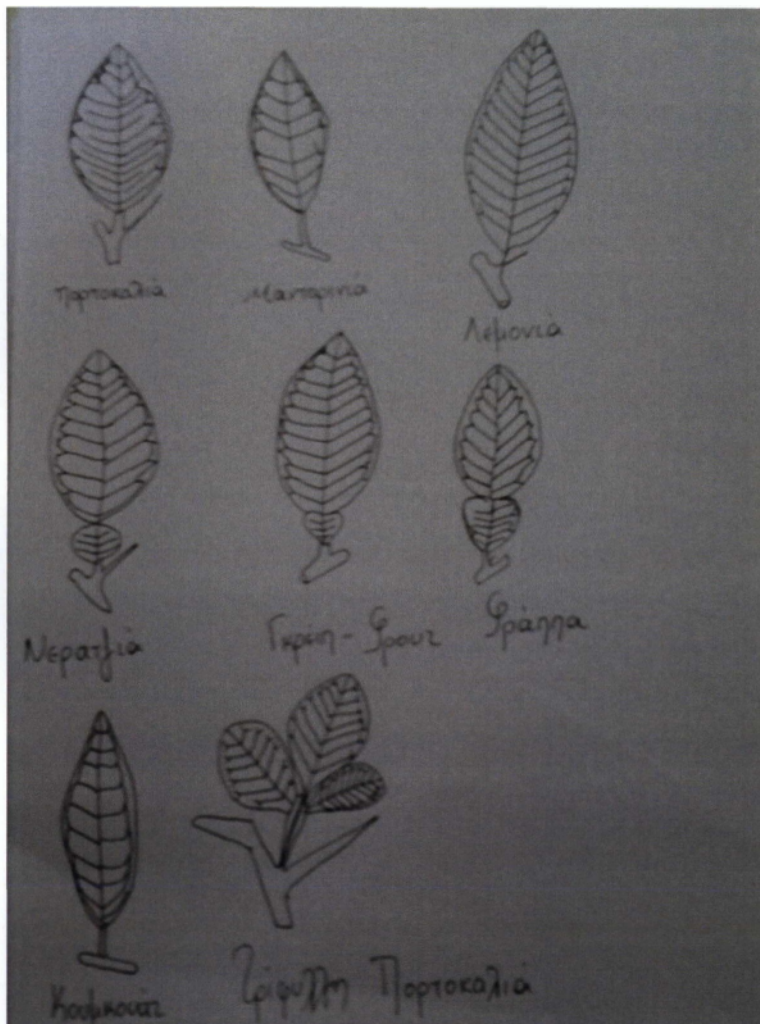 Πορτοκαλιά
Μανταρινιά
Λεμονιά
Νερατζιά
Γκρέιπ - Φρουτ
Φράππα
Κουμκουάτ
Τρίφυλλη Πορτοκαλιά